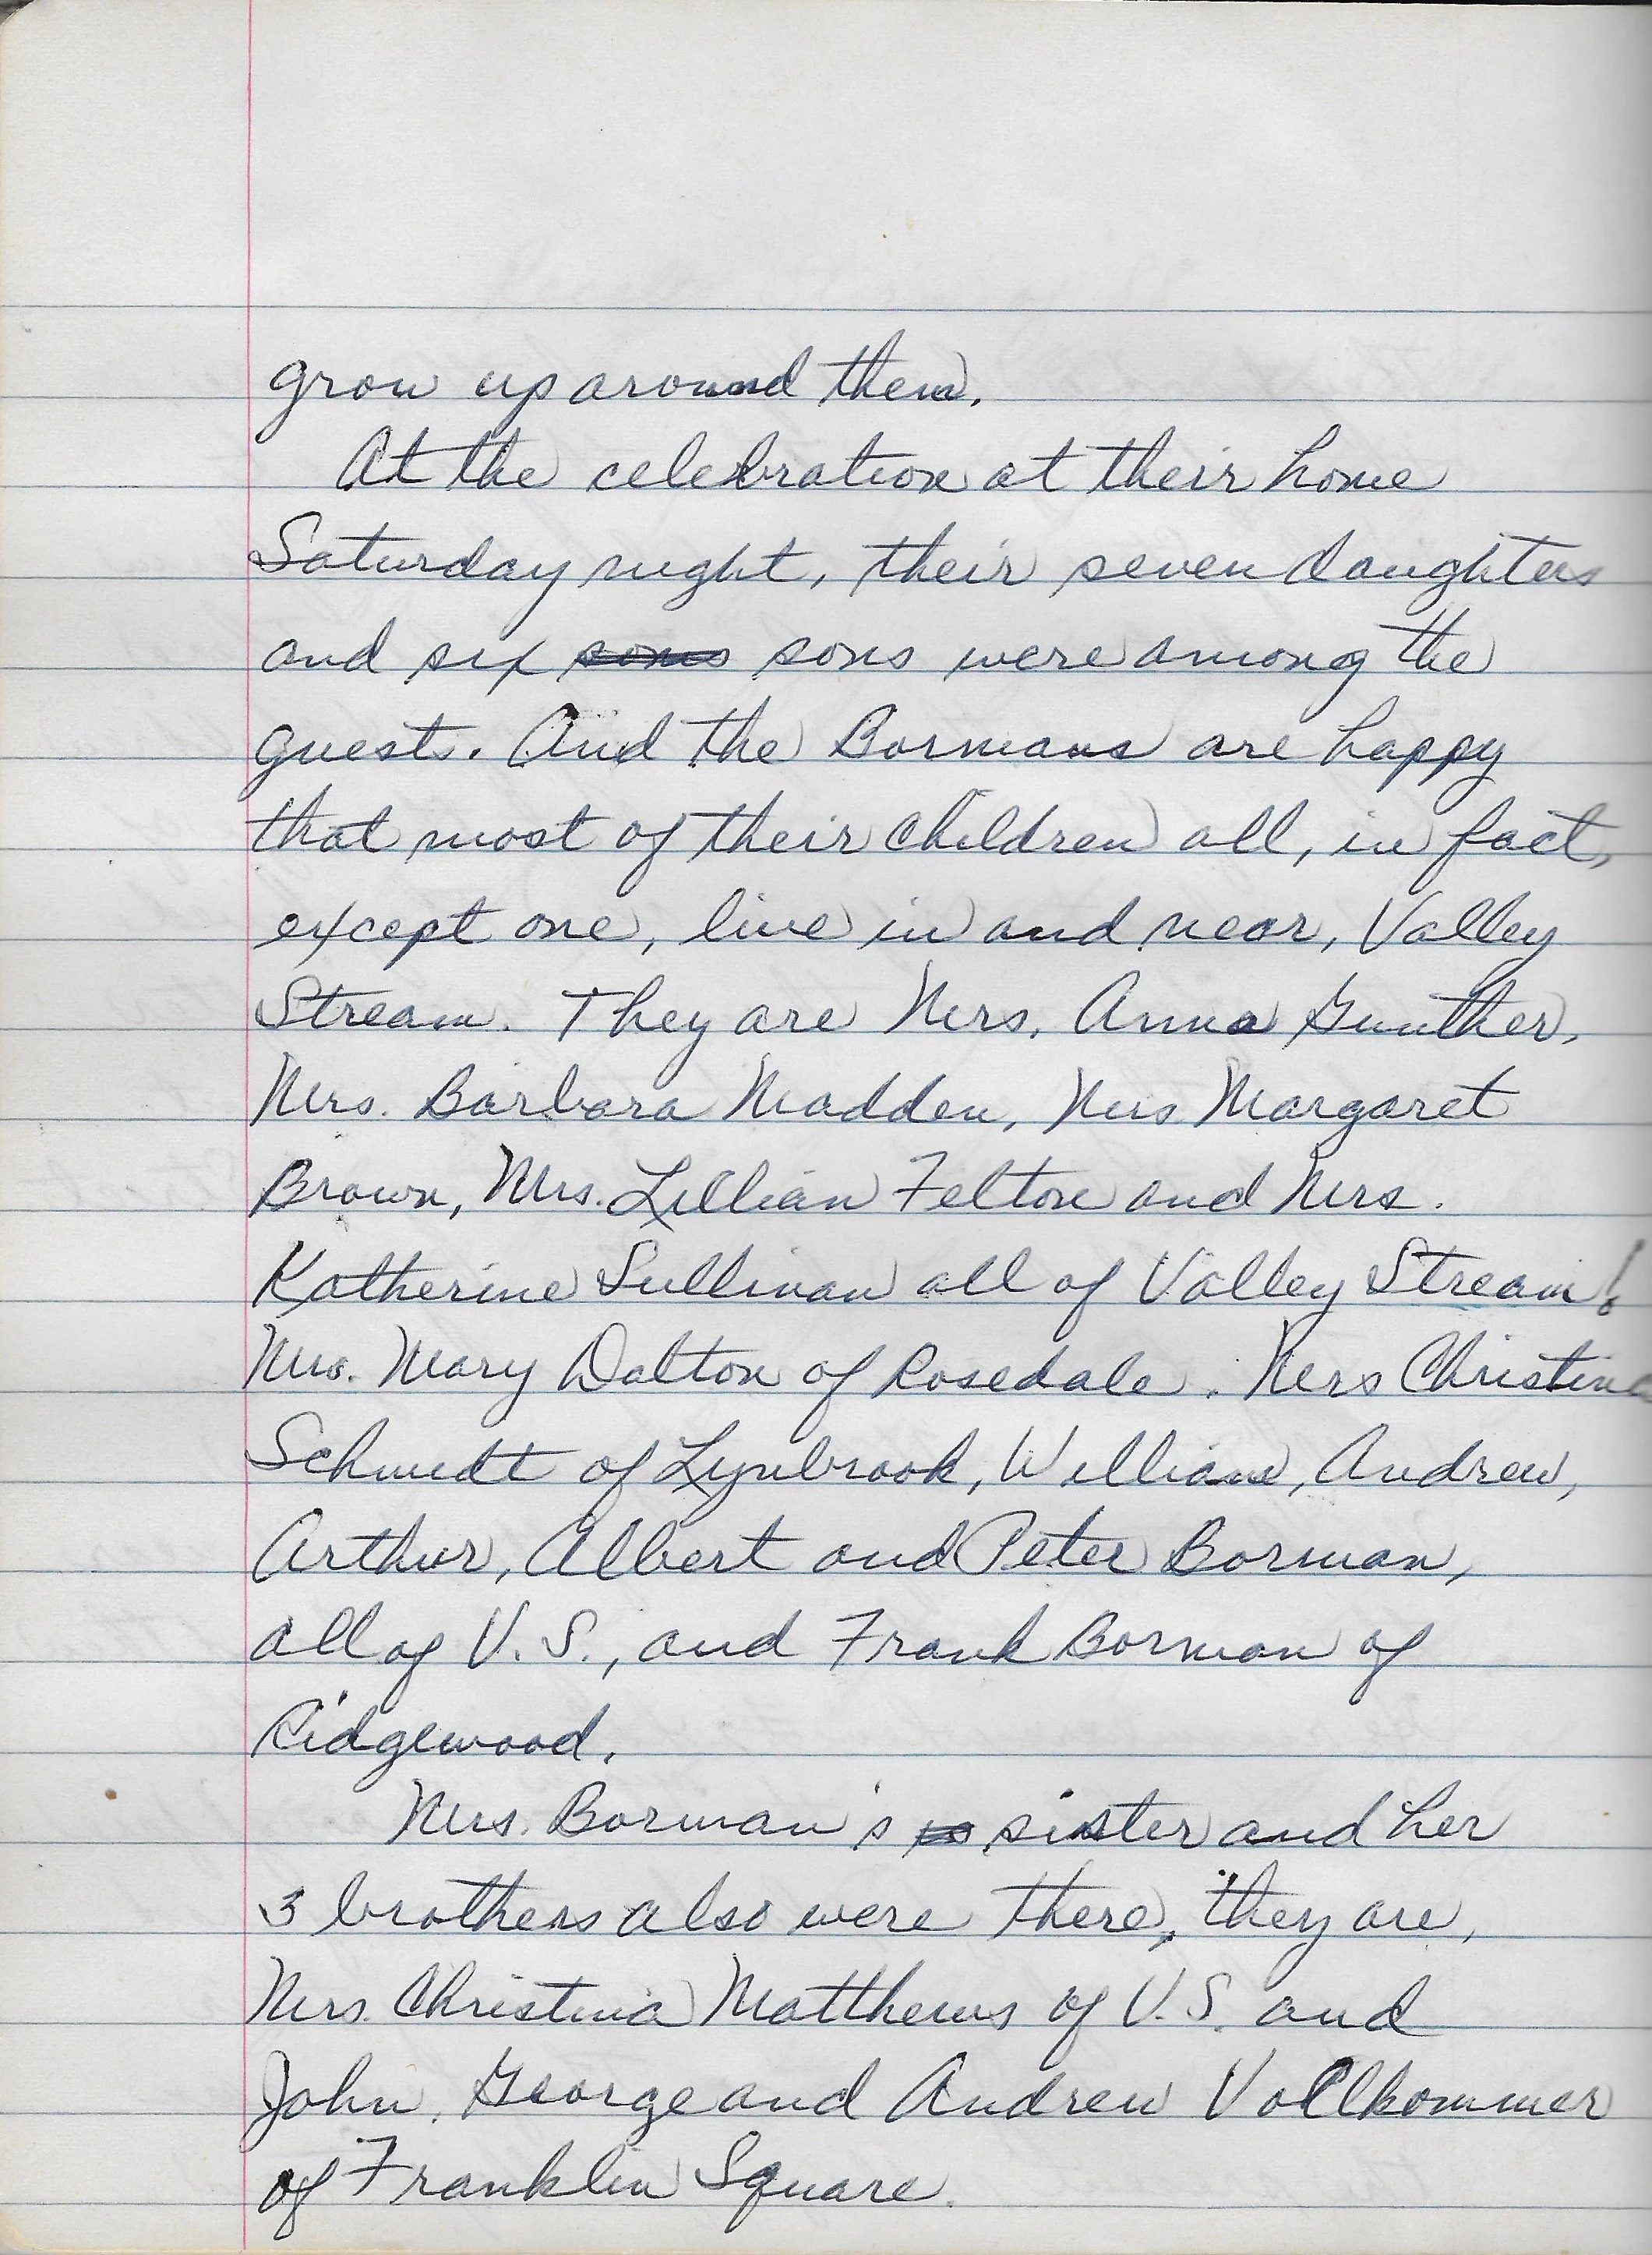 grow up around them.
At the celebration at their home
Saturday night, their seven daughters
and six sons sons were among the
guests. And the Bormans are happy
that most of their children all, in fact,
except one, live in and near, Valley
Stream. They are Mrs. Anna Gunther,
Mrs. Barbara Madden, Mrs Margaret
Brown, Mrs. Lillian Felton and Mrs.
Katherine Sullivan all of Valley Stream!
Mrs. Mary Dalton of Rosedale. Mrs Christina
Schmidt of Lynbrook, William, Andrew,
Arthur, Albert and Peter Borman,
all of V.S., and Frank Borman of
Ridgewood.
Mrs. Borman's sister and her
3 brothers also were there, they are,
Mrs. Christina Matthews of V.S. and
John, George and Andrew Vollkommer
of Franklin Square.